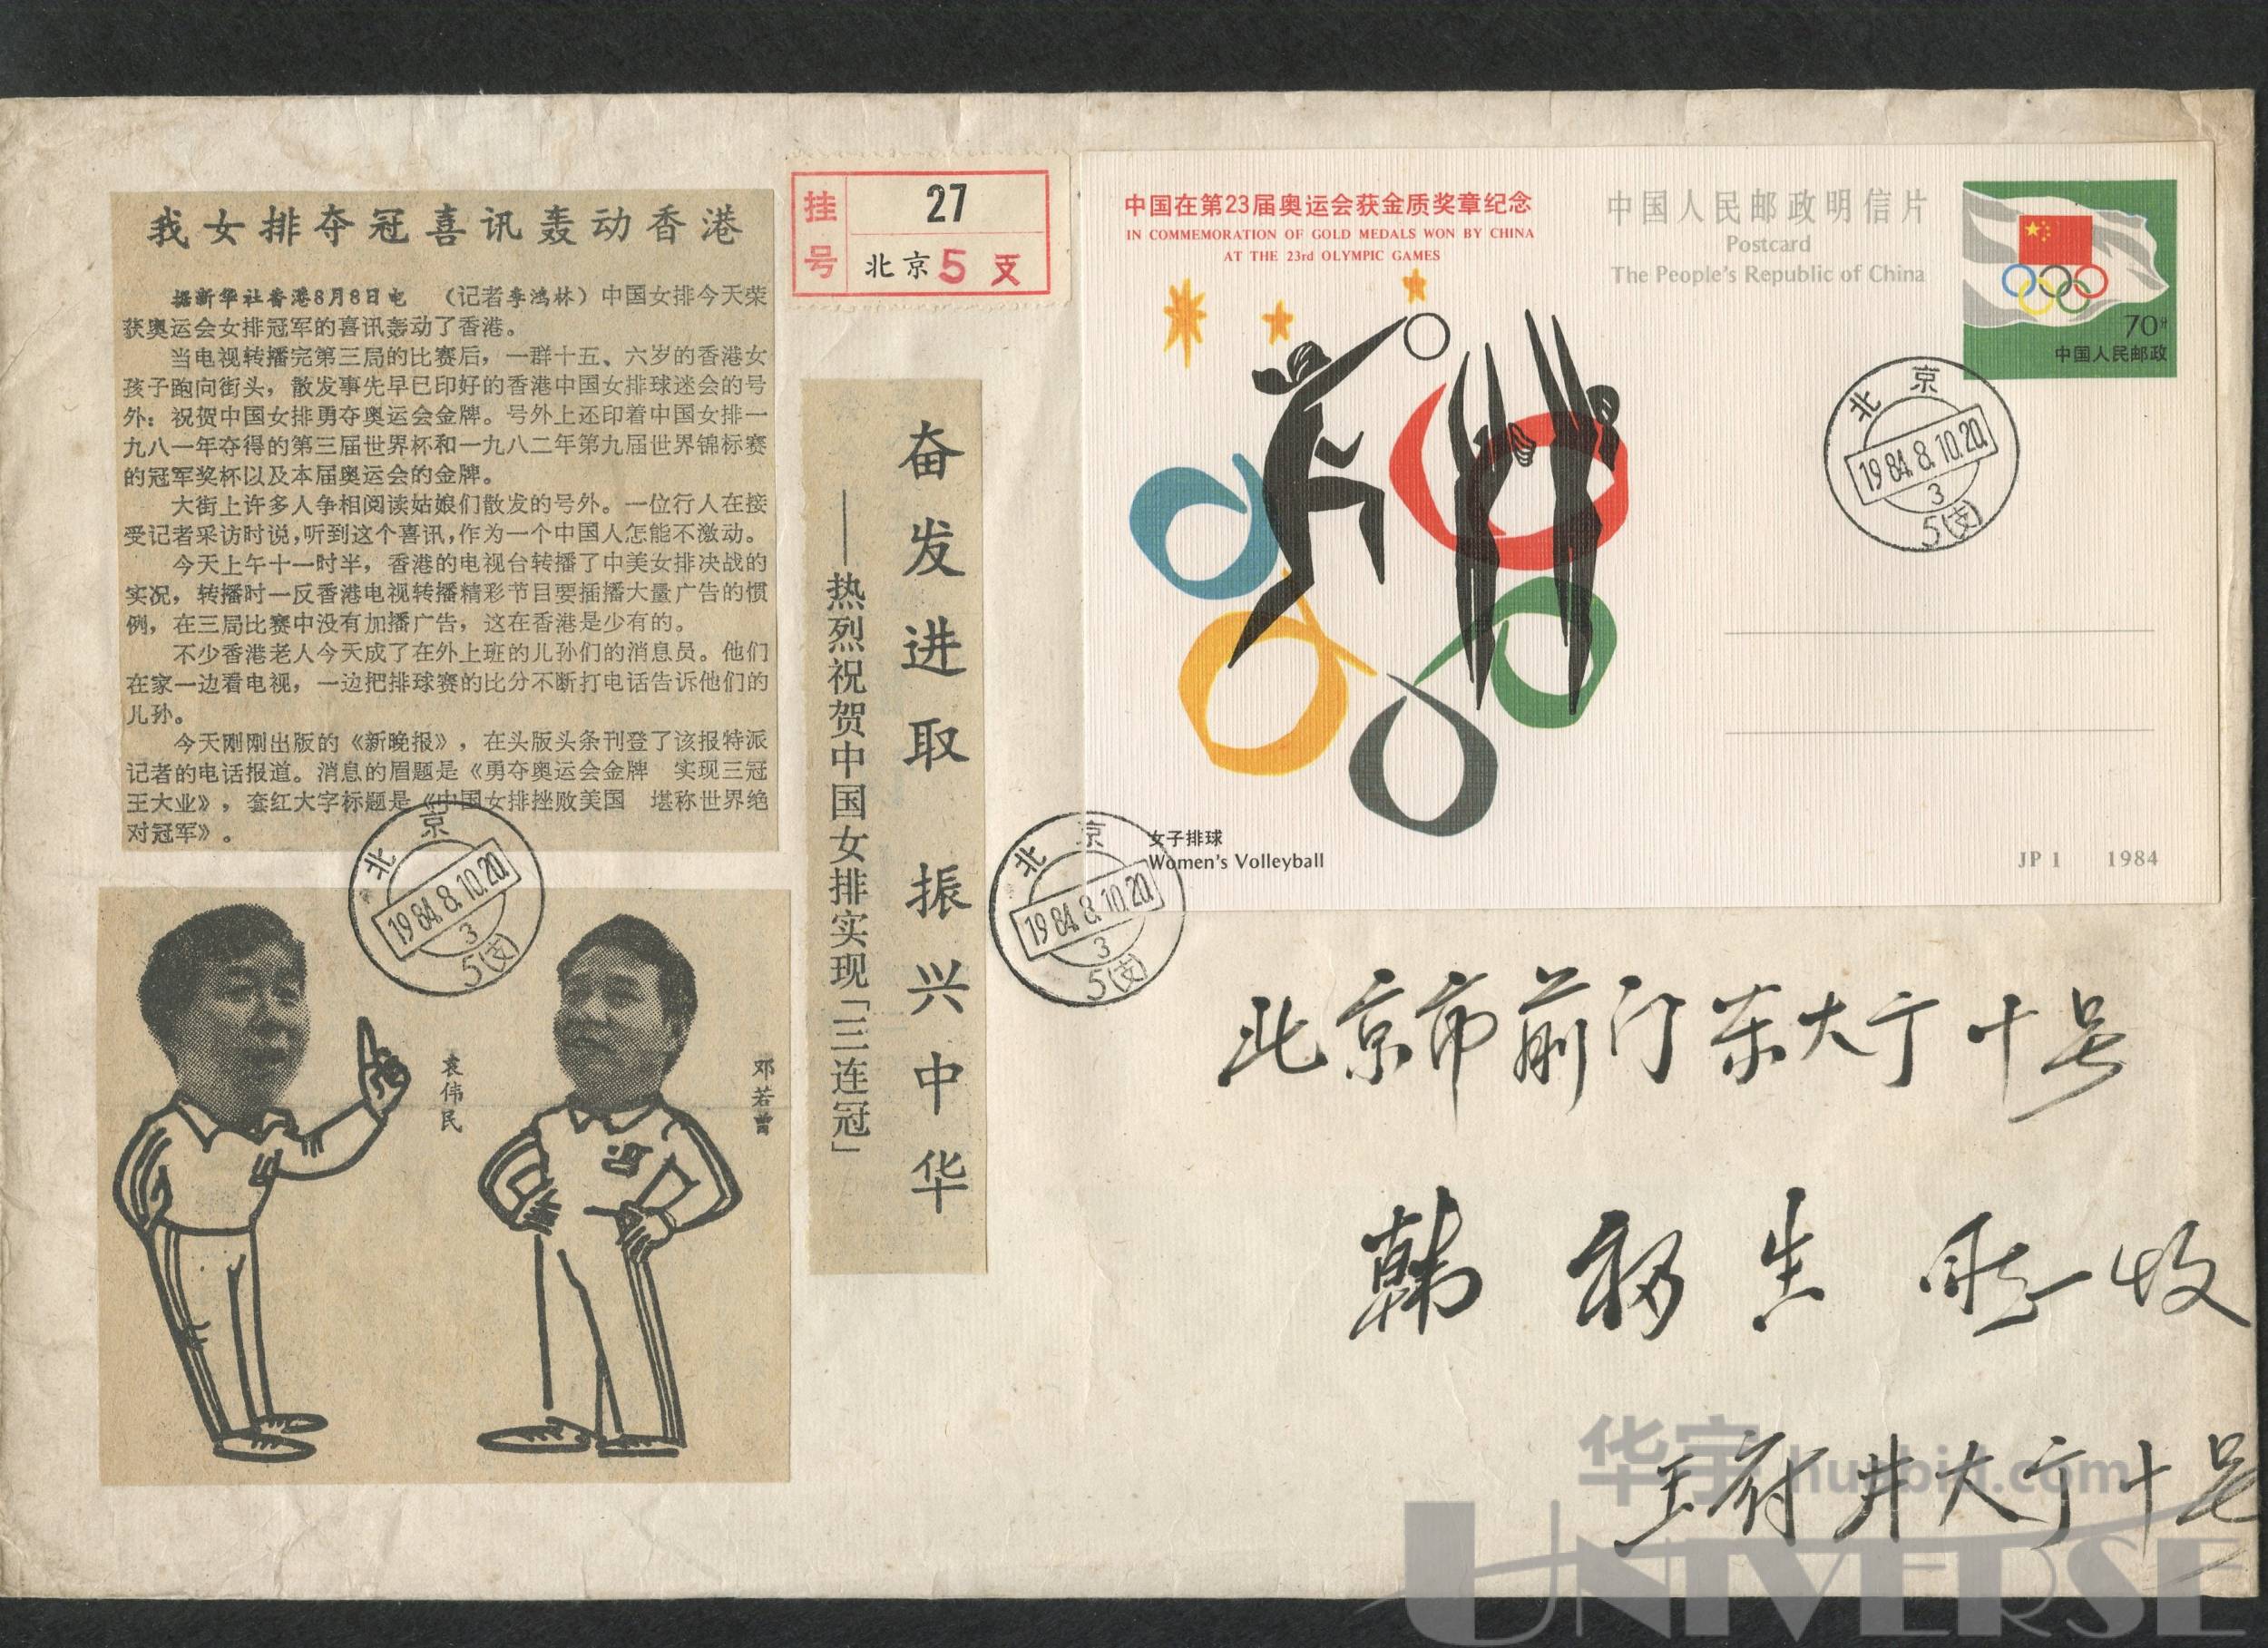 我女排夺冠喜讯轰动香港
据新华社香港8月8日电　（记者李鸿林）中国女排今天荣
获奥运会女排冠军的喜讯轰动了香港。
当电视转播完第三局的比赛后，一群十五、六岁的香港女
孩子跑向街头，散发事先早已印好的香港中国女排球迷会的号
外：祝贺中国女排勇夺奥运会金牌。号外上还印着中国女排一
九八一年夺得的第三届世界杯和一九八二年第九届世界锦标赛
的冠军奖杯以及本届奥运会的金牌。
大街上许多人争相阅读姑娘们散发的号外。一位行人在接
受记者采访时说，听到这个喜讯，作为一个中国人怎能不激动。
今天上午十一时半，香港的电视台转播了中美女排决战的
实况，转播时一反香港电视转播精彩节目要插播大量广告的惯
例，在三局比赛中没有加播广告，这在香港是少有的。
不少香港老人今天成了在外上班的儿孙们的消息员。他们
在家一边看电视，一边把排球赛的比分不断打电话告诉他们的
儿孙。
今天刚刚出版的《新晚报》，在头版头条刊登了该报特派
记者的电话报道。消息的眉题是《勇夺奥运会金牌　实现三冠
王大业》，套红大字标题是《中国女排挫败美国　堪称世界绝
对冠军》。
北京
1984.8.10.20.
3
5(支)
袁伟民
邓若曾
挂号
27
北京5支
奋发进取 振兴中华
——热烈祝贺中国女排实现「三连冠」
中国在第23届奥运会获金质奖章纪念
IN COMMEMORATION OF GOLD MEDALS WON BY CHINA
AT THE 23rd OLYMPIC GAMES
中国人民邮政明信片
Postcard
The People's Republic of China
70分
中国人民邮政
北京
1984.8.10.20.
3
5(支)
女子排球
Women's Volleyball
JP 1 1984
北京
1984.8.10.20.
3
5(支)
北京市前门东大街十号
韩 生 收
王府井大街十号
华宇 huabid.com
UNIVERSE